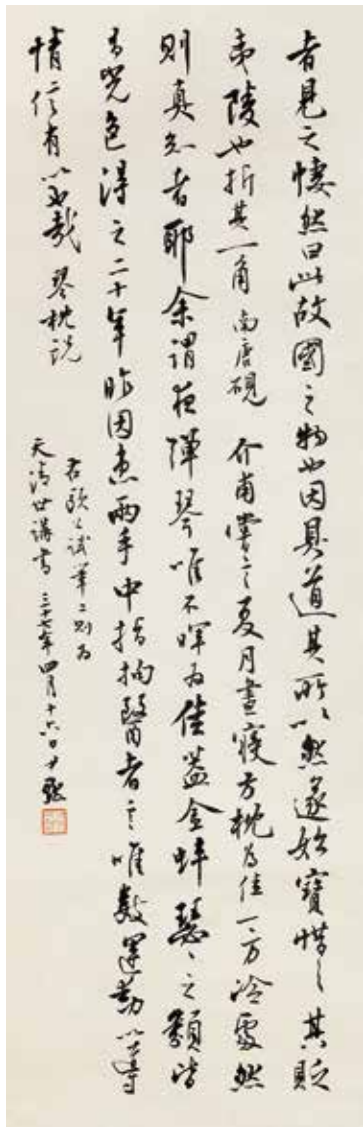 者見之悽然曰此故國之物也因具道其所以然遂始寶惜之其貶
夷陵也折其一角 南唐硯 介甫嘗言夏月晝寢方枕為佳一方冷處然
則真知者耶余謂夜彈琴唯石暉為佳蓋金蚌瑟瑟之類皆
有光色得之二十年昨因患兩手中指拘醫者言唯數運動以導
情信有以也哉 琴枕說
右歐公試筆二則為
天清世講書 三十七年四月十六日尹默